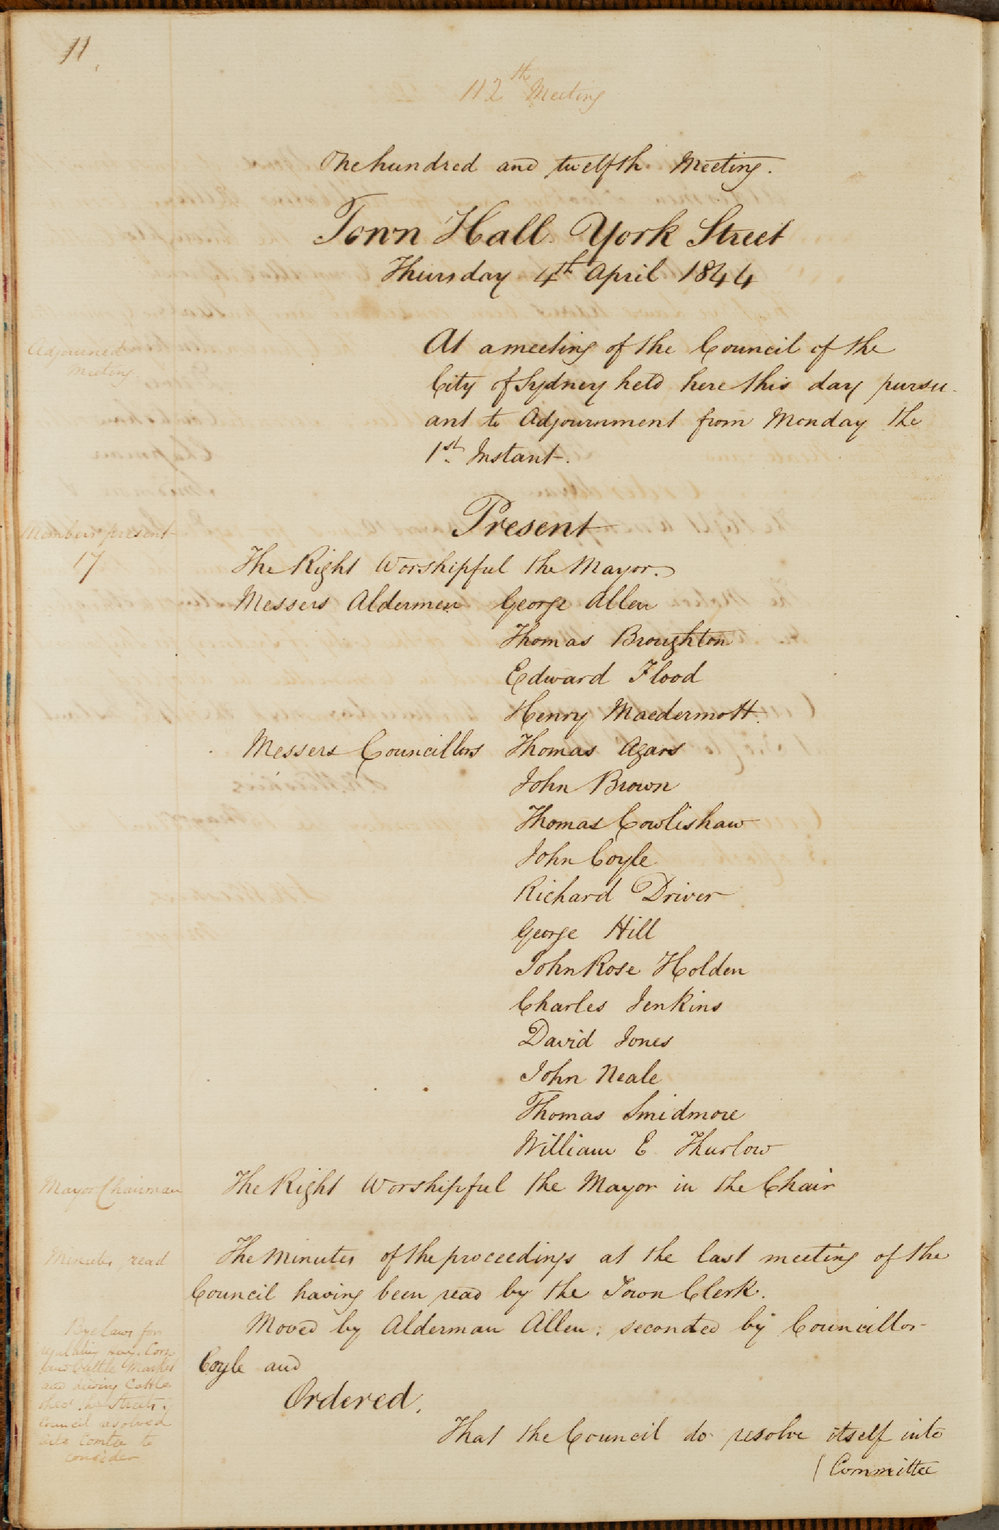 11.
112th Meeting
One hundred and twelfth Meeting.
Town Hall York Street
Thursday 4th April 1844
Adjourned
Meeting
At a meeting of the Council of the
City of Sydney held here this day pursu-
ant to Adjournment from Monday the
1st. Instant.
Present
Members present
17
The Right Worshipful the Mayor.
Messers Aldermen George Allen
Thomas Broughton
Edward Flood
Henry Macdermott.
Messers Councillors Thomas Agars
John Brown
Thomas Cowlishaw
John Coyle
Richard Driver
George Hill
John Rose Holden
Charles Jenkins
David Jones
John Neale
Thomas Smidmore
William E. Thurlow
Mayor Chairman
The Right Worshipful the Mayor in the Chair
Minutes read
The minutes of the proceedings at the last meeting of the
Council having been read by the Town Clerk.
Moved by Alderman Allen: seconded by Councillor
Coyle and
Bye Laws for
regulating Hay, Corn
and Cattle Market
and driving Cattle
thro' the Streets:
Council resolved
into Comtee to
consider
Ordered.
That the Council do resolve itself into
(Committee